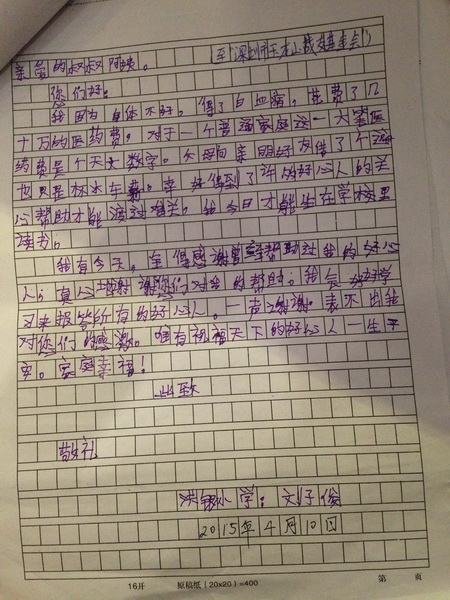 亲爱的叔叔阿姨。
您们好：
我因为身体不好，得了白血病，花费了几
十万的医药费。对于一个普通家庭这一大笔医
药费是个天大数字。父母向亲朋好友借了个遍
也只是杯水车薪。幸好得到了许多的好心人的关
心帮助才能渡过难关，我今日才能坐在学校里
读书；
我有今天。全得感谢曾经帮助过我的好心
人；真心地谢谢您们对我的帮助。我会好好学
习来报答所有的好心人。一声谢谢。表不出我
对您们的感激。唯有祝福天下的好心人一生平
安。家庭幸福！
此致
敬礼
小学：刘子俊
2015年4月10日
16开 原稿纸（20x20）=400 第 页